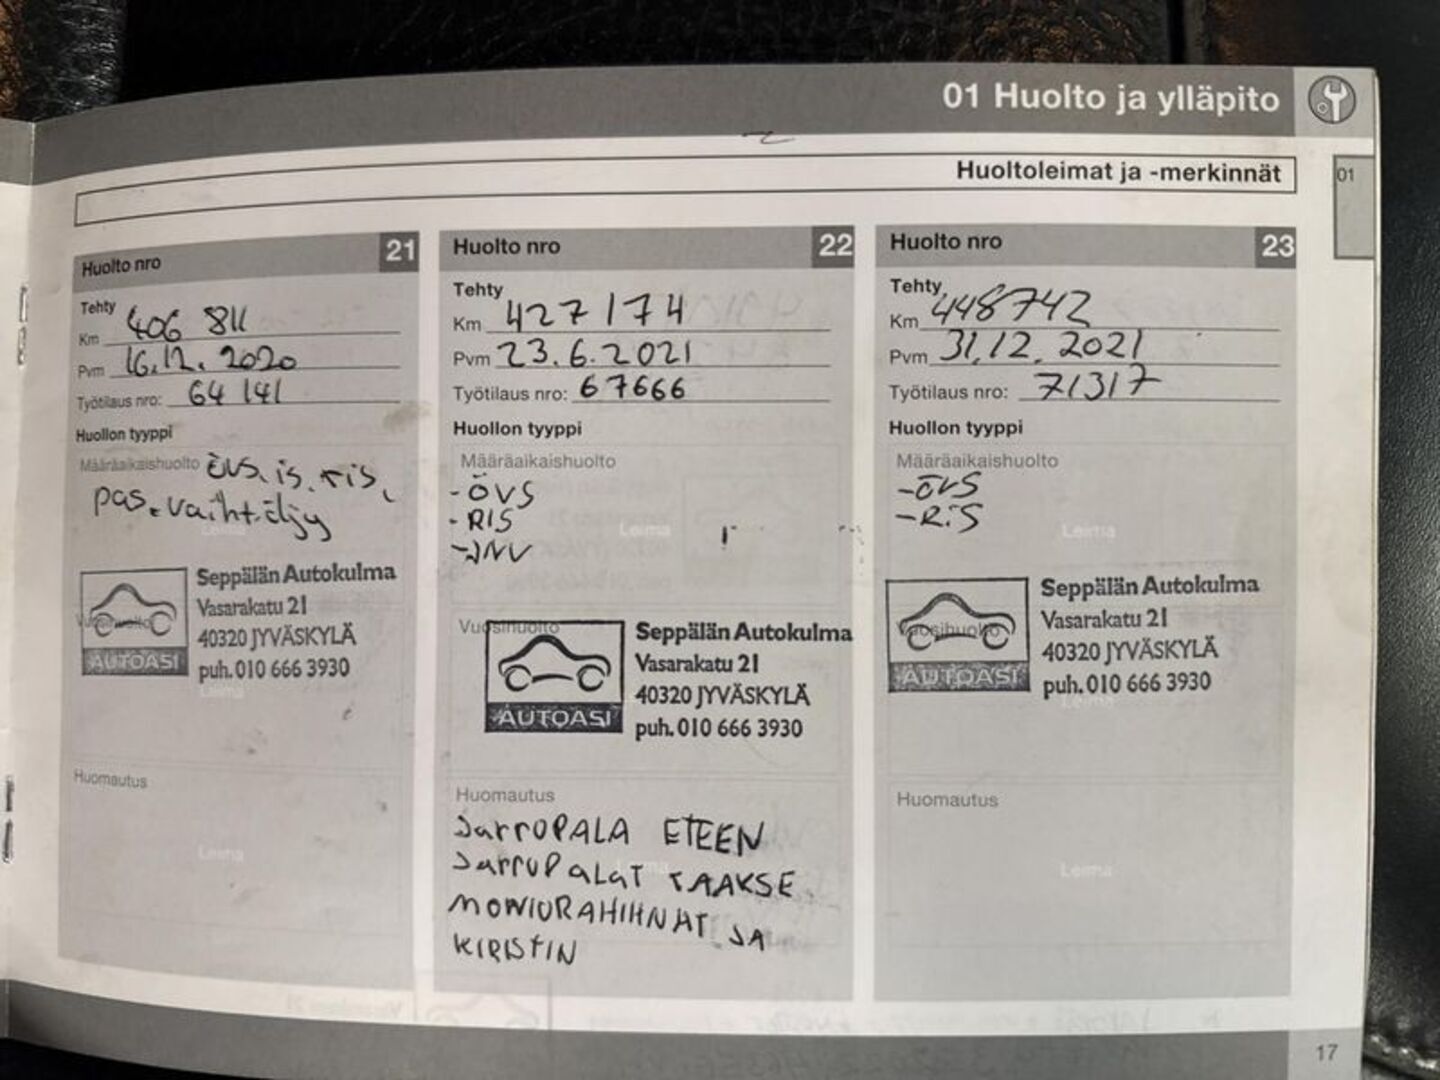 01 Huolto ja ylläpito
Huoltoleimat ja -merkinnät
01
Huolto nro 21
Tehty
Km 406 811
Pvm 16.12.2020
Työtilaus nro: 64 141
Huollon tyyppi
Määräaikaishuolto övs, is, ris,
pas. vaiht.öljy
Leima
Seppälän Autokulma
Vasarakatu 21
Vuosihuolto
40320 JYVÄSKYLÄ
AUTOASI
puh. 010 666 3930
Leima
Huomautus
Leima
Huolto nro 22
Tehty
Km 427 174
Pvm 23.6.2021
Työtilaus nro: 67666
Huollon tyyppi
Määräaikaishuolto
- ÖVS
- RIS
Leima
Vuosihuolto
Seppälän Autokulma
Vasarakatu 21
40320 JYVÄSKYLÄ
AUTOASI
puh. 010 666 3930
Huomautus
JarrUPALA ETEEN
JarrUPALAT TAAKSE
Leima
MONIURAHIHNAT JA
KIRISTIN
Huolto nro 23
Tehty
Km 448742
Pvm 31.12.2021
Työtilaus nro: 71317
Huollon tyyppi
Määräaikaishuolto
- ÖVS
- RIS
Leima
Seppälän Autokulma
Vasarakatu 21
Vuosihuolto
40320 JYVÄSKYLÄ
AUTOASI
puh. 010 666 3930
Leima
Huomautus
Leima
17